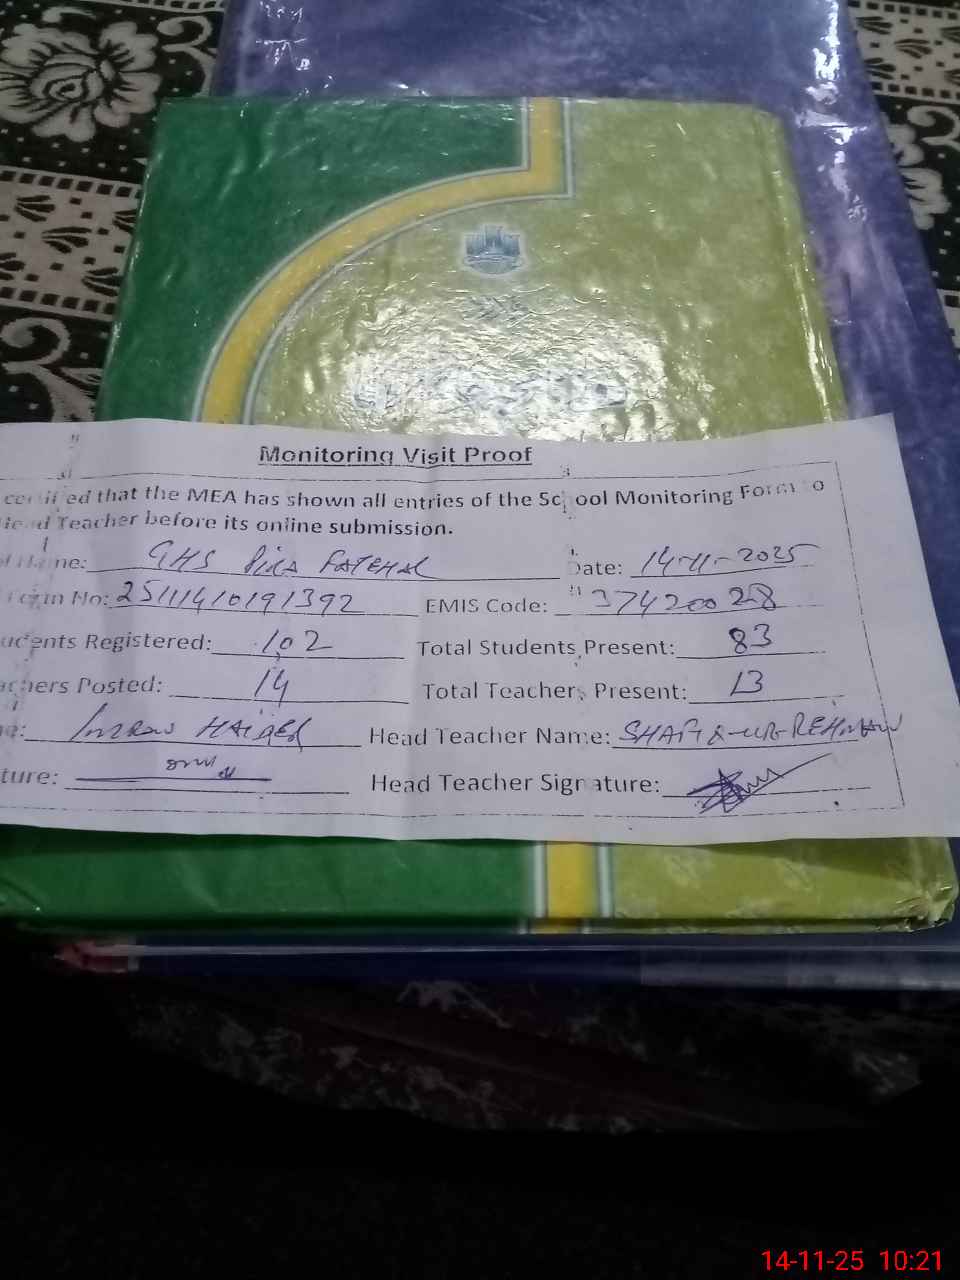 Monitoring Visit Proof
certified that the MEA has shown all entries of the School Monitoring Form to
Head Teacher before its online submission.
Name: GHS PIRA FATEHAL Date: 14-11-2025
Form No: 25111410191392 EMIS Code: 37420028
udents Registered: 102 Total Students Present: 83
achers Posted: 14 Total Teachers Present: 13
HAIDER Head Teacher Name: SHAFIQ-UR-REHMAN
ture: Head Teacher Signature:
14-11-25 10:21